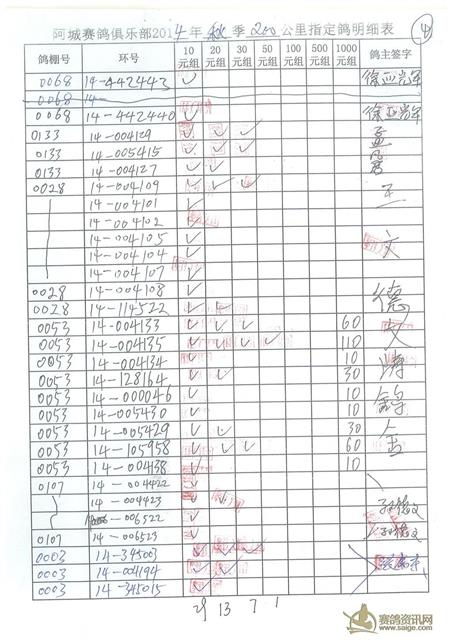 阿城赛鸽俱乐部2014年秋季200公里指定鸽明细表 ④
鸽棚号 环号 10元组 20元组 30元组 50元组 100元组 500元组 1000元组 鸽主签字
0068 14-442443 ✓
0068 14-
0068 14-442440 ✓
0133 14-004129 ✓ ✓ ✓ 孟
0133 14-005415 ✓ ✓ ✓
0133 14-004127 ✓ ✓
0028 14-004109 ✓ ✓ ✓ 王
14-004101 ✓
14-004102 ✓
14-004105 ✓ 文
14-004104 ✓
14-004107 ✓
0028 14-004108 ✓ 德
0028 14-114522 ✓ ✓
0053 14-004133 ✓ ✓ ✓ 60 文
0053 14-004135 ✓ ✓ ✓ ✓ 110
0053 14-004134 ✓ 10
0053 14-128164 ✓ ✓ 30
0053 14-000046 ✓ 10
0053 14-005430 ✓ 10
0053 14-005429 ✓ ✓ 30
0053 14-105958 ✓ ✓ ✓ 60
0053 14-004138 ✓ 10
0107 14-004422 ✓
14-004423 ✓
14-006522 ✓
0107 14-006523 ✓
0003 14-345003 ✓ ✓ ✓
0003 14-004194 ✓ ✓ ✓
0003 14-345015 ✓ ✓
29 13 7 1
赛鸽资讯网
www.saige.com